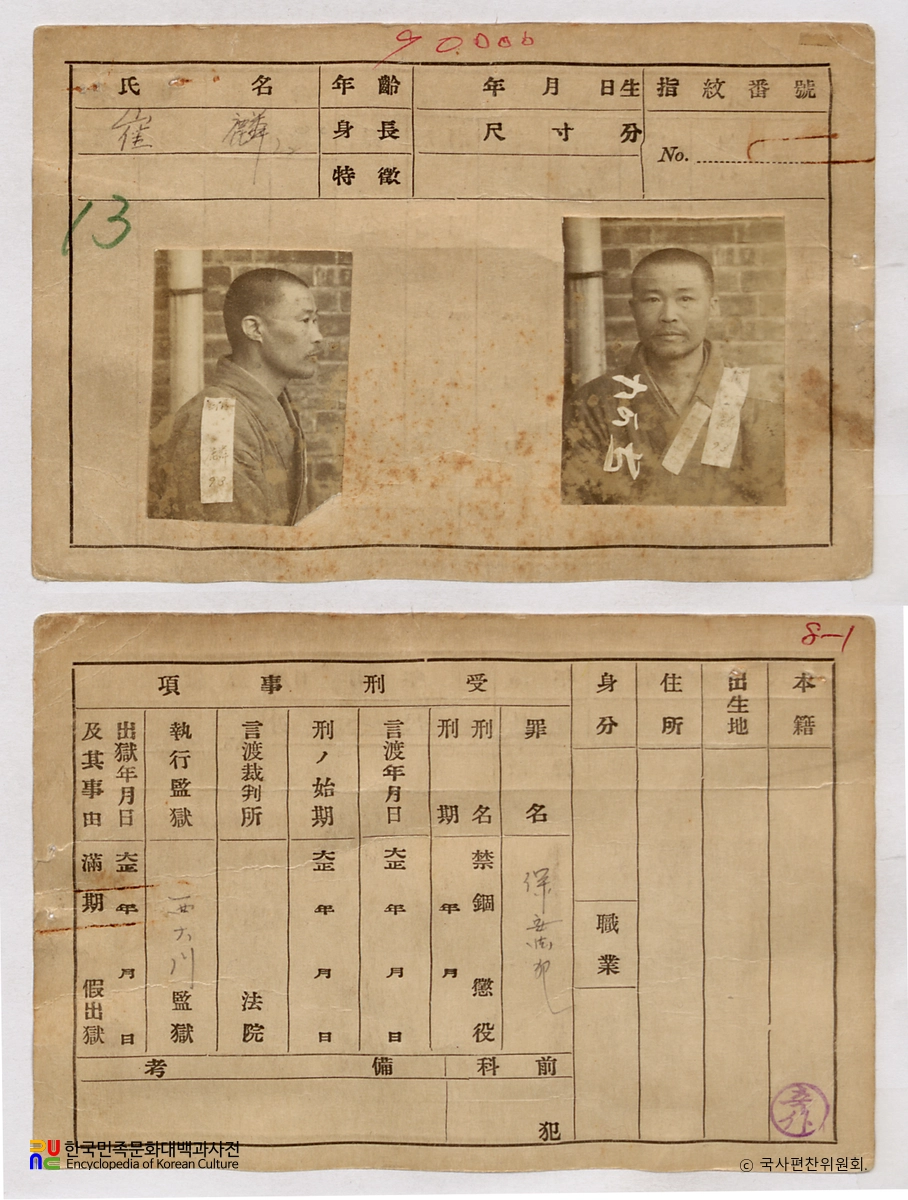 氏名
年齡
年 月 日生
指紋番號
崔麟
身長
尺 寸 分
No.
特徵
13
麟
8-1
本籍
出生地
住所
身分
職業
受刑事項
罪名
保安法
刑名
禁錮 懲役
刑期
年 月
言渡年月日
大正 年 月 日
刑ノ始期
大正 年 月 日
言渡裁判所
法院
執行監獄
西大門監獄
出獄年月日
及其事由
大正 年 月 日
滿期 假出獄
前科
犯
備考
한국민족문화대백과사전
Encyclopedia of Korean Culture
© 국사편찬위원회.